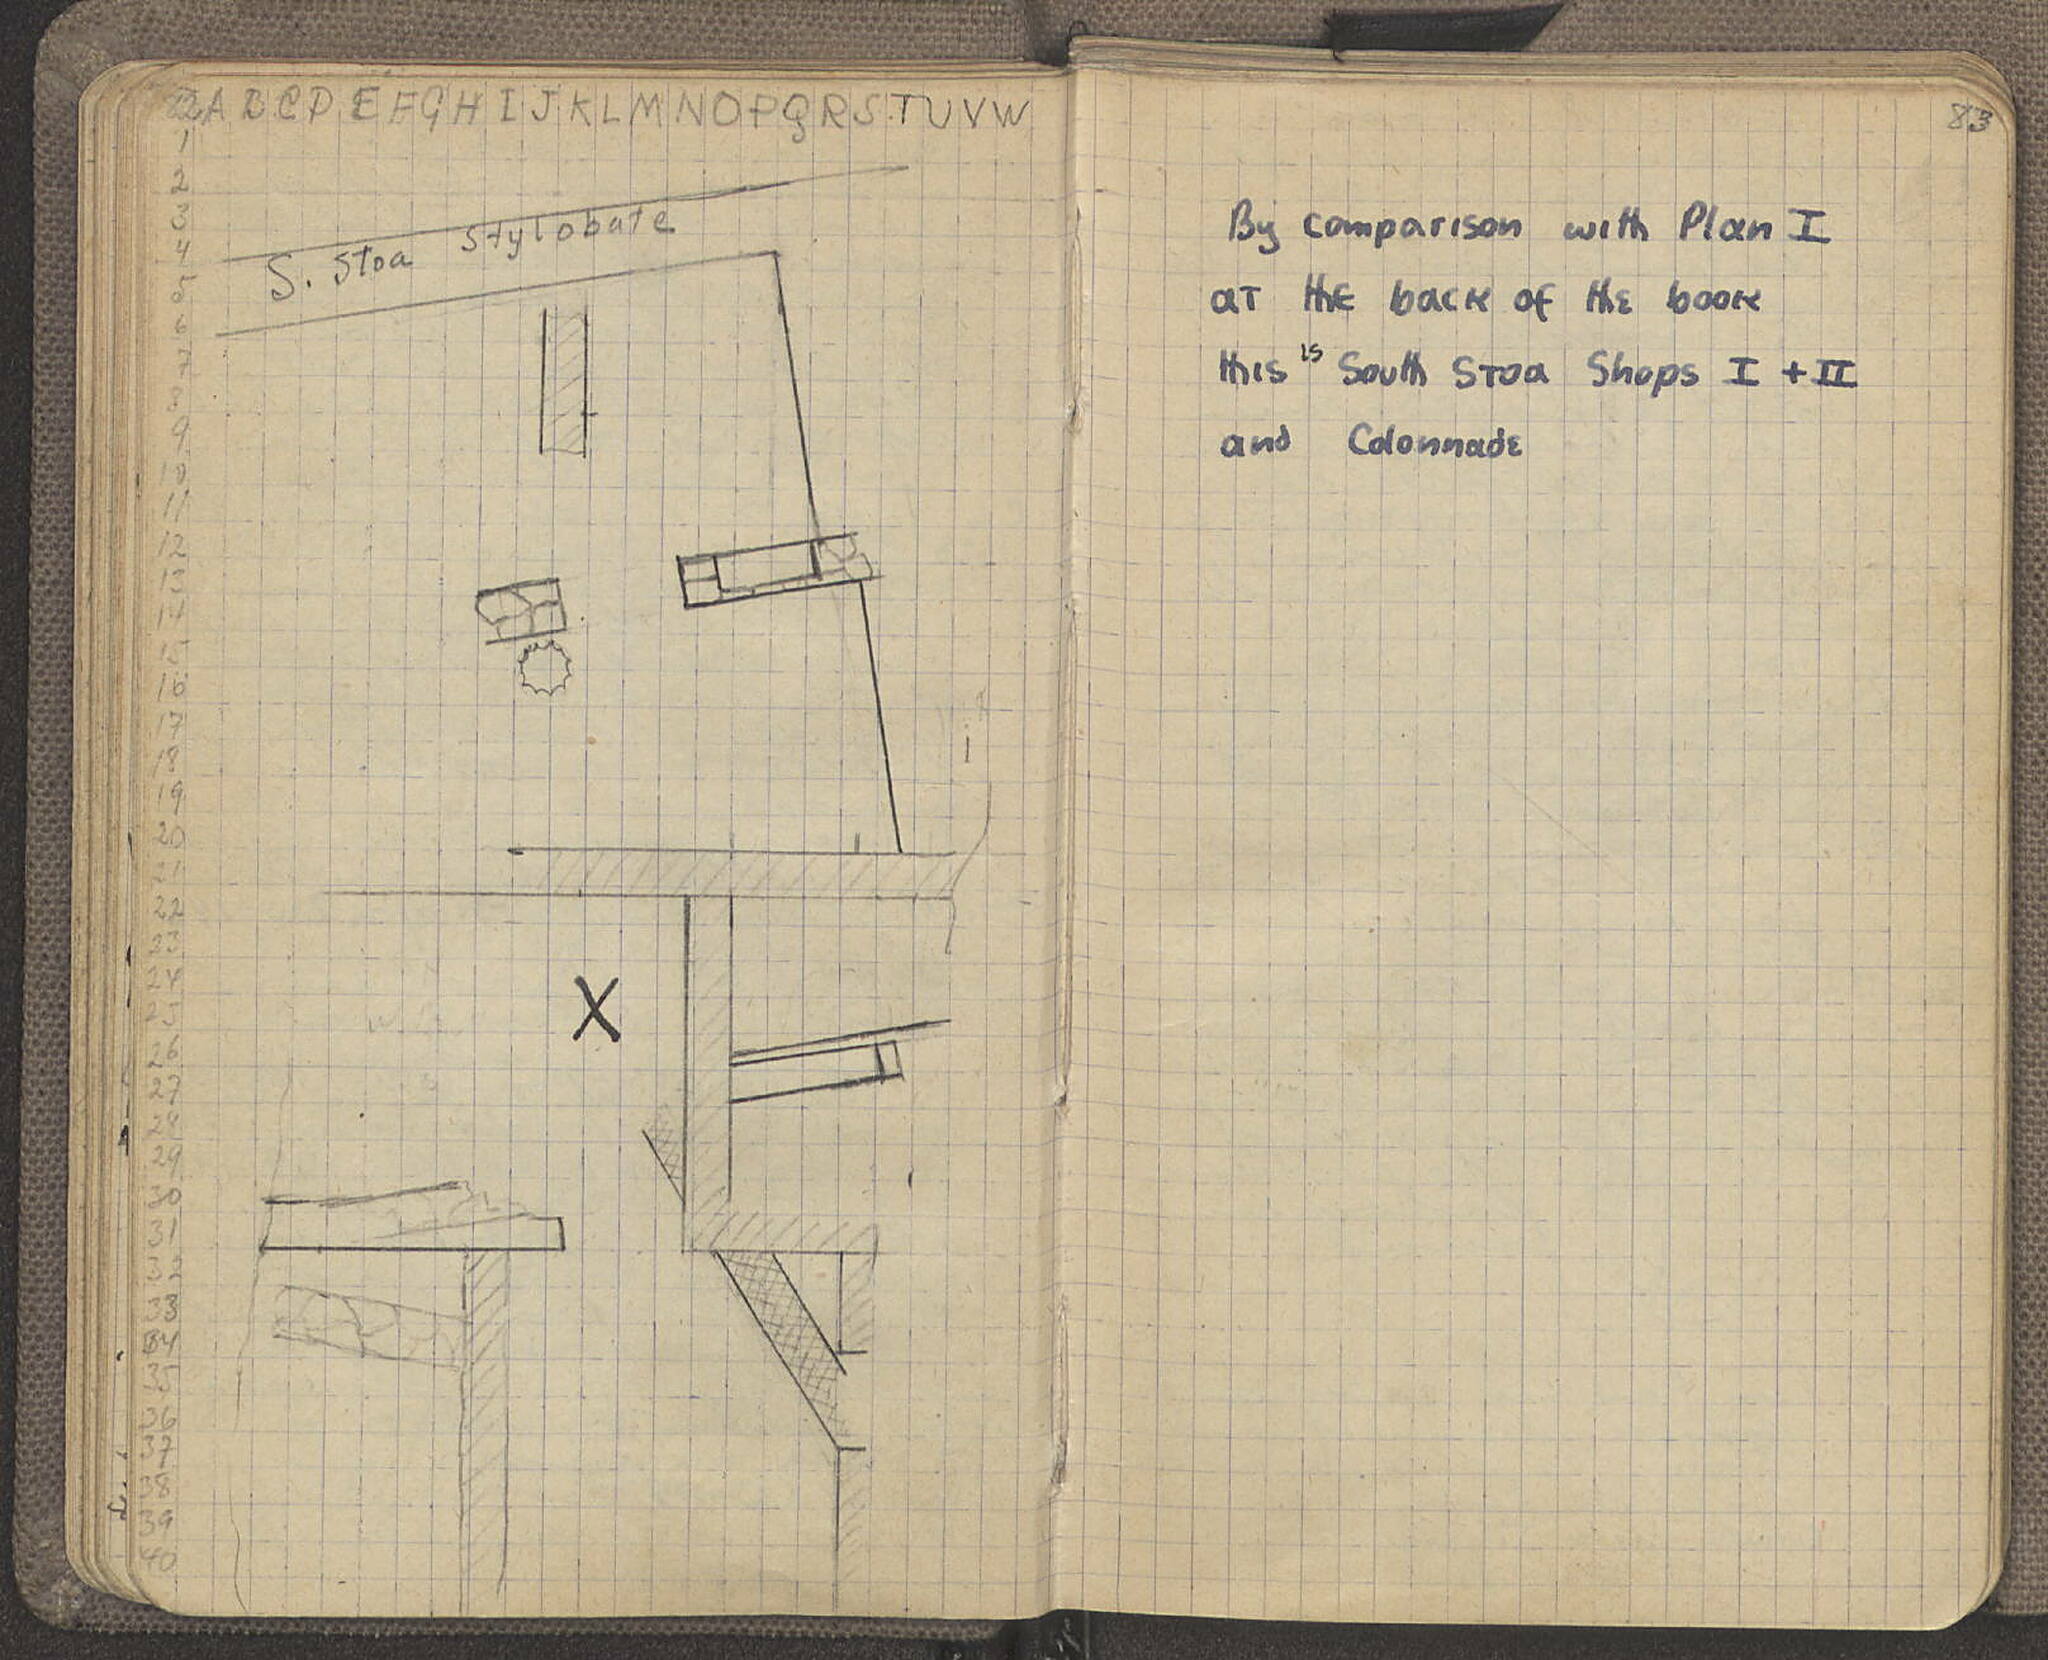 82 A B C D E F G H I J K L M N O P Q R S T U V W
1
2
3
4
5
6
7
8
9
10
11
12
13
14
15
16
17
18
19
20
21
22
23
24
25
26
27
28
29
30
31
32
33
34
35
36
37
38
39
40
S. Stoa Stylobate
X
83
By comparison with Plan I
at the back of the book
this is South Stoa Shops I + II
and Colonnade